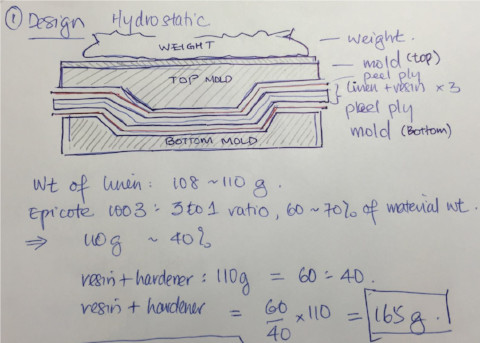 ① Design Hydrostatic
WEIGHT
TOP MOLD
BOTTOM MOLD
weight.
mold (top)
peel ply
linen + resin × 3
peel ply
mold (Bottom)
Wt of linen : 108 ~ 110 g.
Epicote 1003 : 3 to 1 ratio, 60 ~ 70% of material wt.
⇒ 110g ~ 40%
resin + hardener : 110g = 60 : 40.
resin + hardener = 60/40 × 110 = 165g.